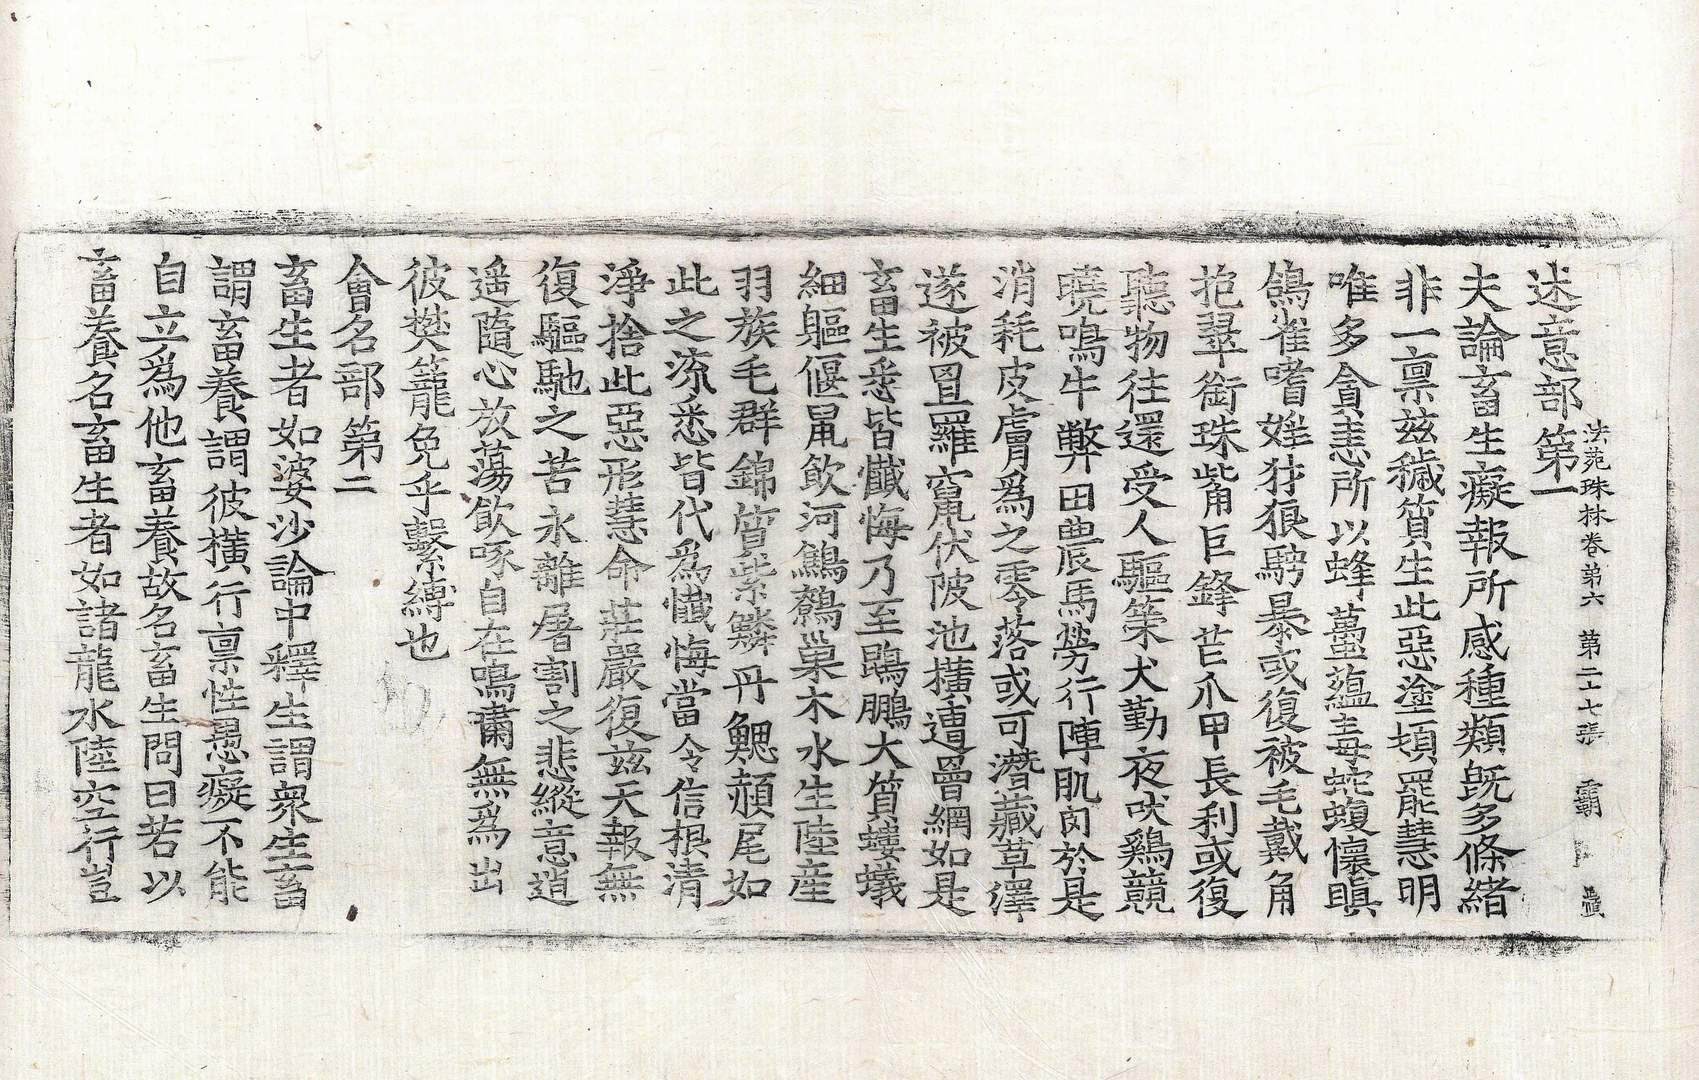 述意部第一
法苑珠林卷第六　第二十七張　霸
夫論畜生癡報所感種類既多條緒
非一禀兹穢質生此惡塗頓罷慧明
唯多貪恚所以蜂蠆蘊毒蛇蝮懷瞋
鴿雀嗜婬犲狼騁暴或復被毛戴角
抱翠銜珠觜巨鋒芒爪甲長利或復
聽物往還受人驅策犬勤夜吠鷄競
曉鳴牛弊田農馬勞行陣肌肉於是
消耗皮膚爲之零落或可潛藏草澤
遂被罝羅竄伏陂池橫遭罾網如是
畜生悉皆懺悔乃至鵾鵬大質螻蟻
細軀偃鼠飲河鷦鷯巢木水生陸産
羽族毛群錦質紫鱗丹鰓頳尾如
此之流悉皆代爲懺悔當令信根清
淨捨此惡形慧命莊嚴復兹天報無
復驅馳之苦永離屠割之悲縱意逍
遥隨心放蕩飲啄自在鳴嘯無爲出
彼樊籠免乎繫縛也
會名部第二
畜生者如婆沙論中釋生謂衆生畜
謂畜養謂彼橫行禀性愚癡不能
自立爲他畜養故名畜生問曰若以
畜養名畜生者如諸龍水陸空行豈